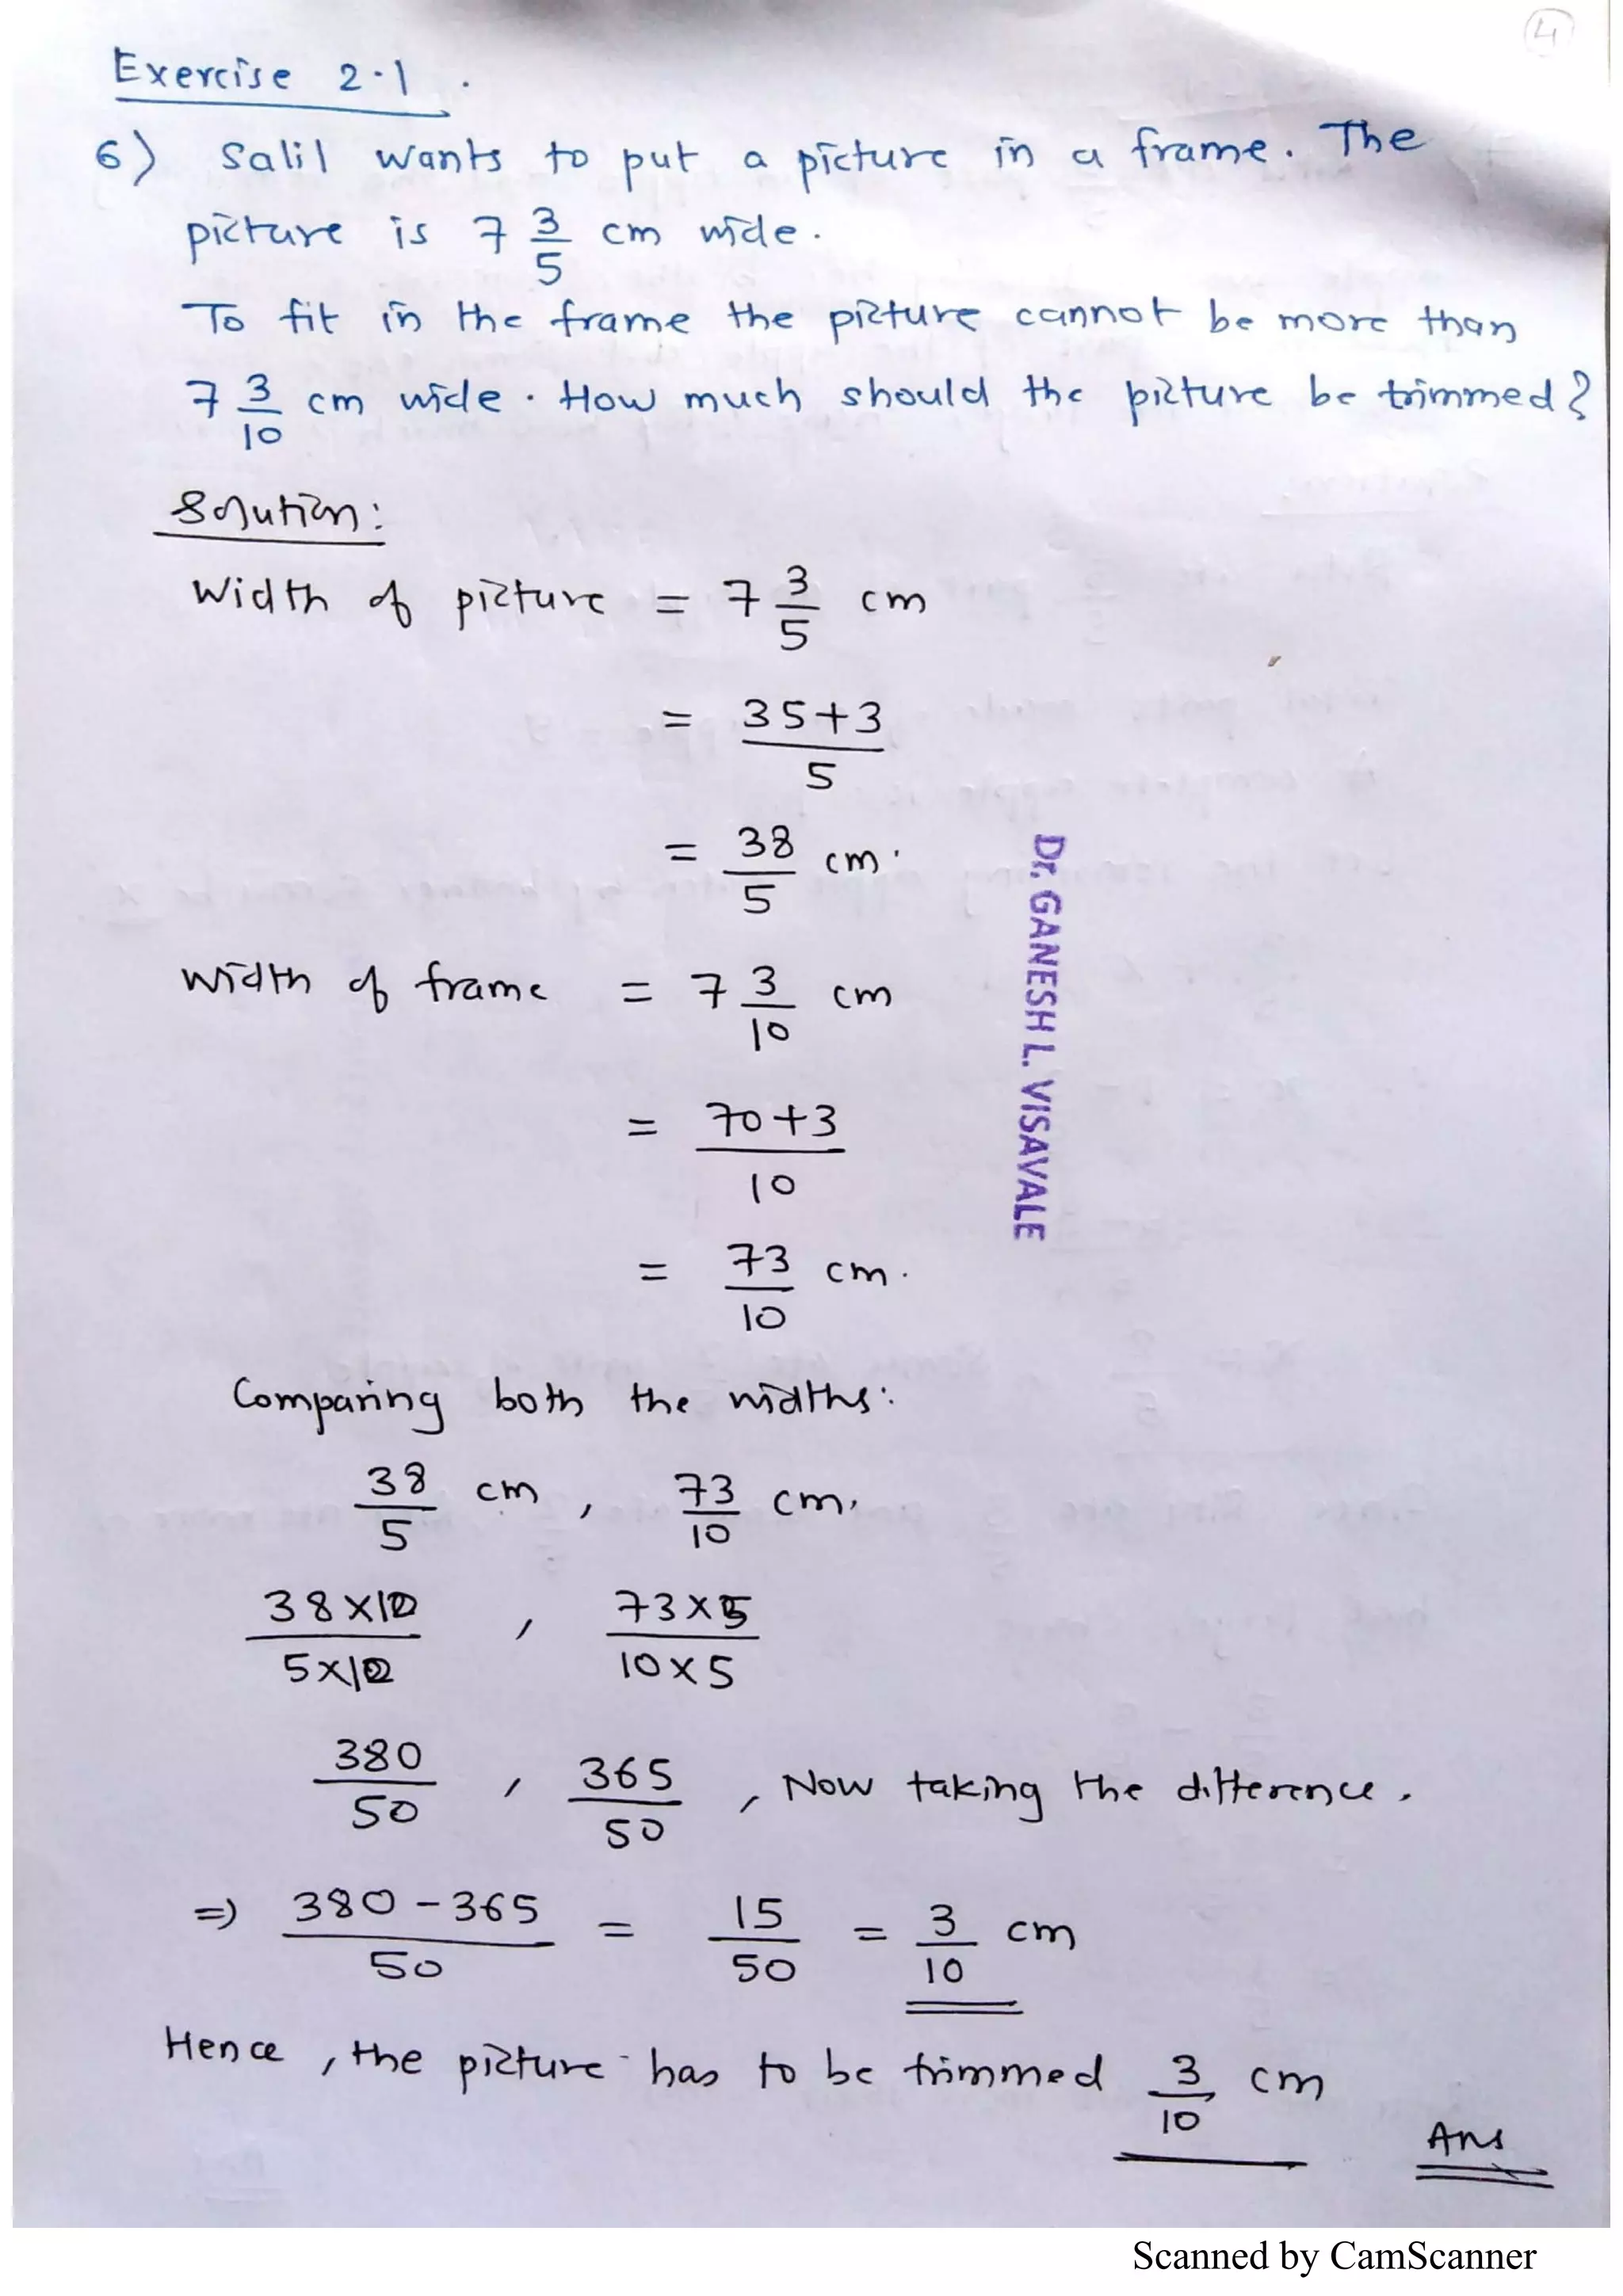 4
Exercise 2.1 .
6) Salil wants to put a picture in a frame. The
picture is 7 3/5 cm wide.
To fit in the frame the picture cannot be more than
7 3/10 cm wide. How much should the picture be trimmed?
Solution:
Width of picture = 7 3/5 cm
= 35+3/5
= 38/5 cm.
Width of frame = 7 3/10 cm
= 70+3/10
= 73/10 cm.
Dr. GANESH L. VISAVALE
Comparing both the widths:
38/5 cm , 73/10 cm.
38×10/5×10 , 73×5/10×5
380/50 , 365/50 , Now taking the difference.
⇒ 380-365/50 = 15/50 = 3/10 cm
Hence, the picture has to be trimmed 3/10 cm
Ans
Scanned by CamScanner